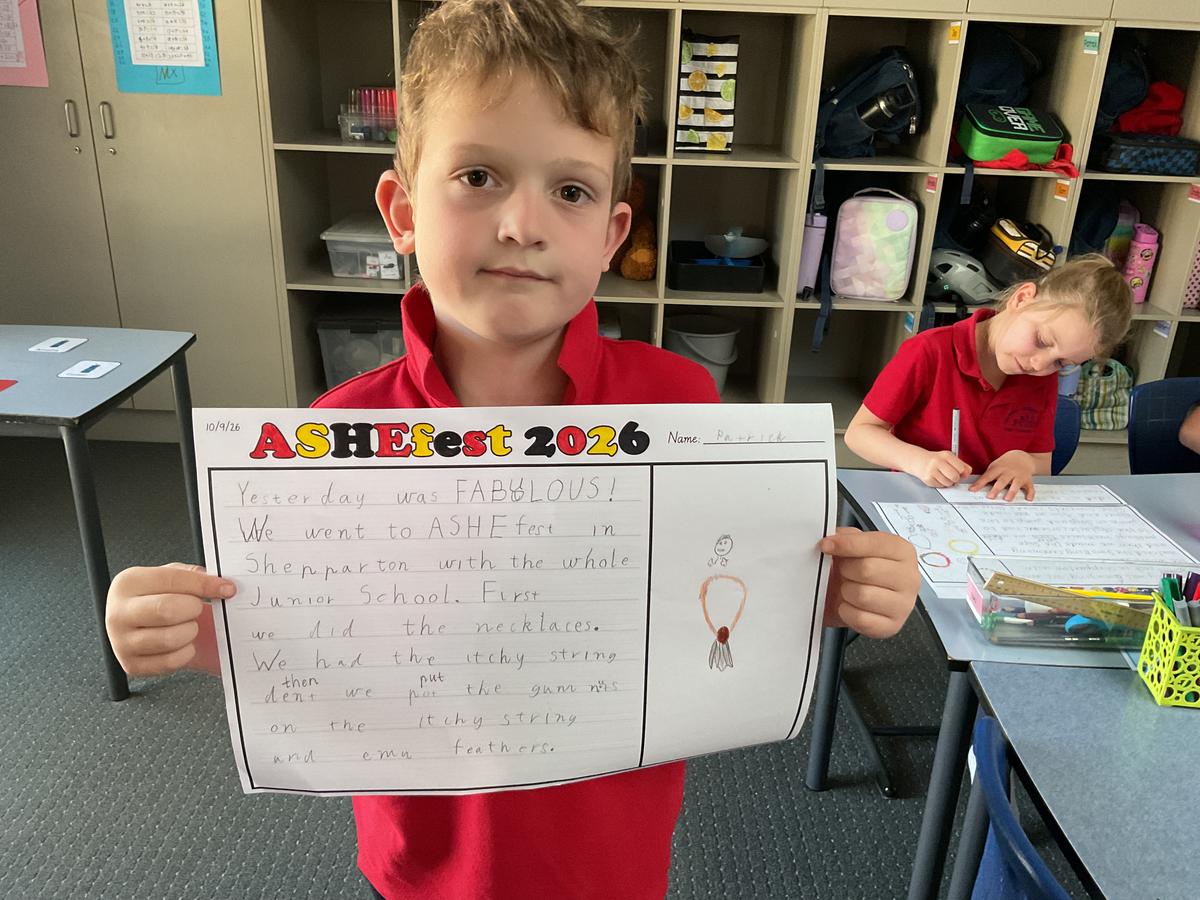 10/9/26
ASHEfest 2026
Name: Patrick
Yesterday was FABULOUS!
We went to ASHEfest in
Shepparton with the whole
Junior School. First
we did the necklaces.
We had the itchy string
then put
dent we pot the gum nuts
on the itchy string
and emu feathers.